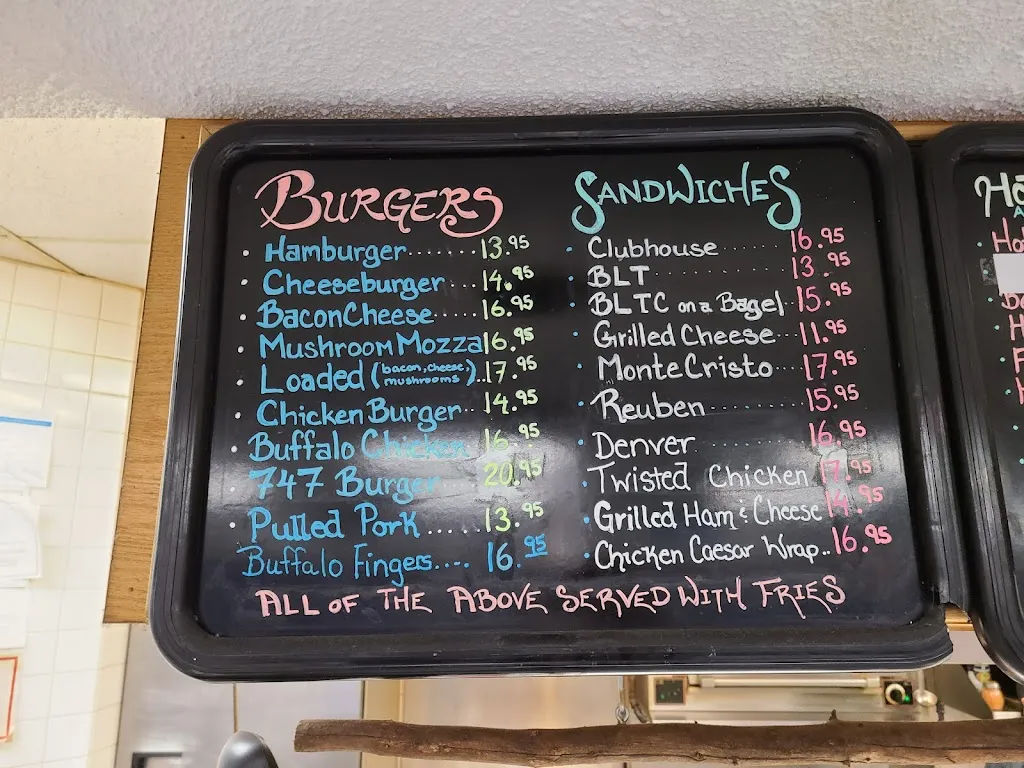 BURGERS
· Hamburger....... 13.95
· Cheeseburger... 14.95
· Bacon Cheese..... 16.95
· Mushroom Mozza 16.95
· Loaded (bacon, cheese, mushrooms)..17.95
· Chicken Burger.. 14.95
· Buffalo Chicken 16.95
· 747 Burger.. 20.95
· Pulled Pork ..... 13.95
Buffalo Fingers.... 16.95
SANDWICHES
· Clubhouse ....... 16.95
· BLT .......... 13.95
· BLTC on a Bagel.. 15.95
· Grilled Cheese... 11.95
· Monte Cristo.... 17.95
· Reuben .......... 15.95
· Denver .......... 16.95
· Twisted Chicken 17.95
· Grilled Ham & Cheese 14.95
· Chicken Caesar Wrap.. 16.95
ALL OF THE ABOVE SERVED WITH FRIES